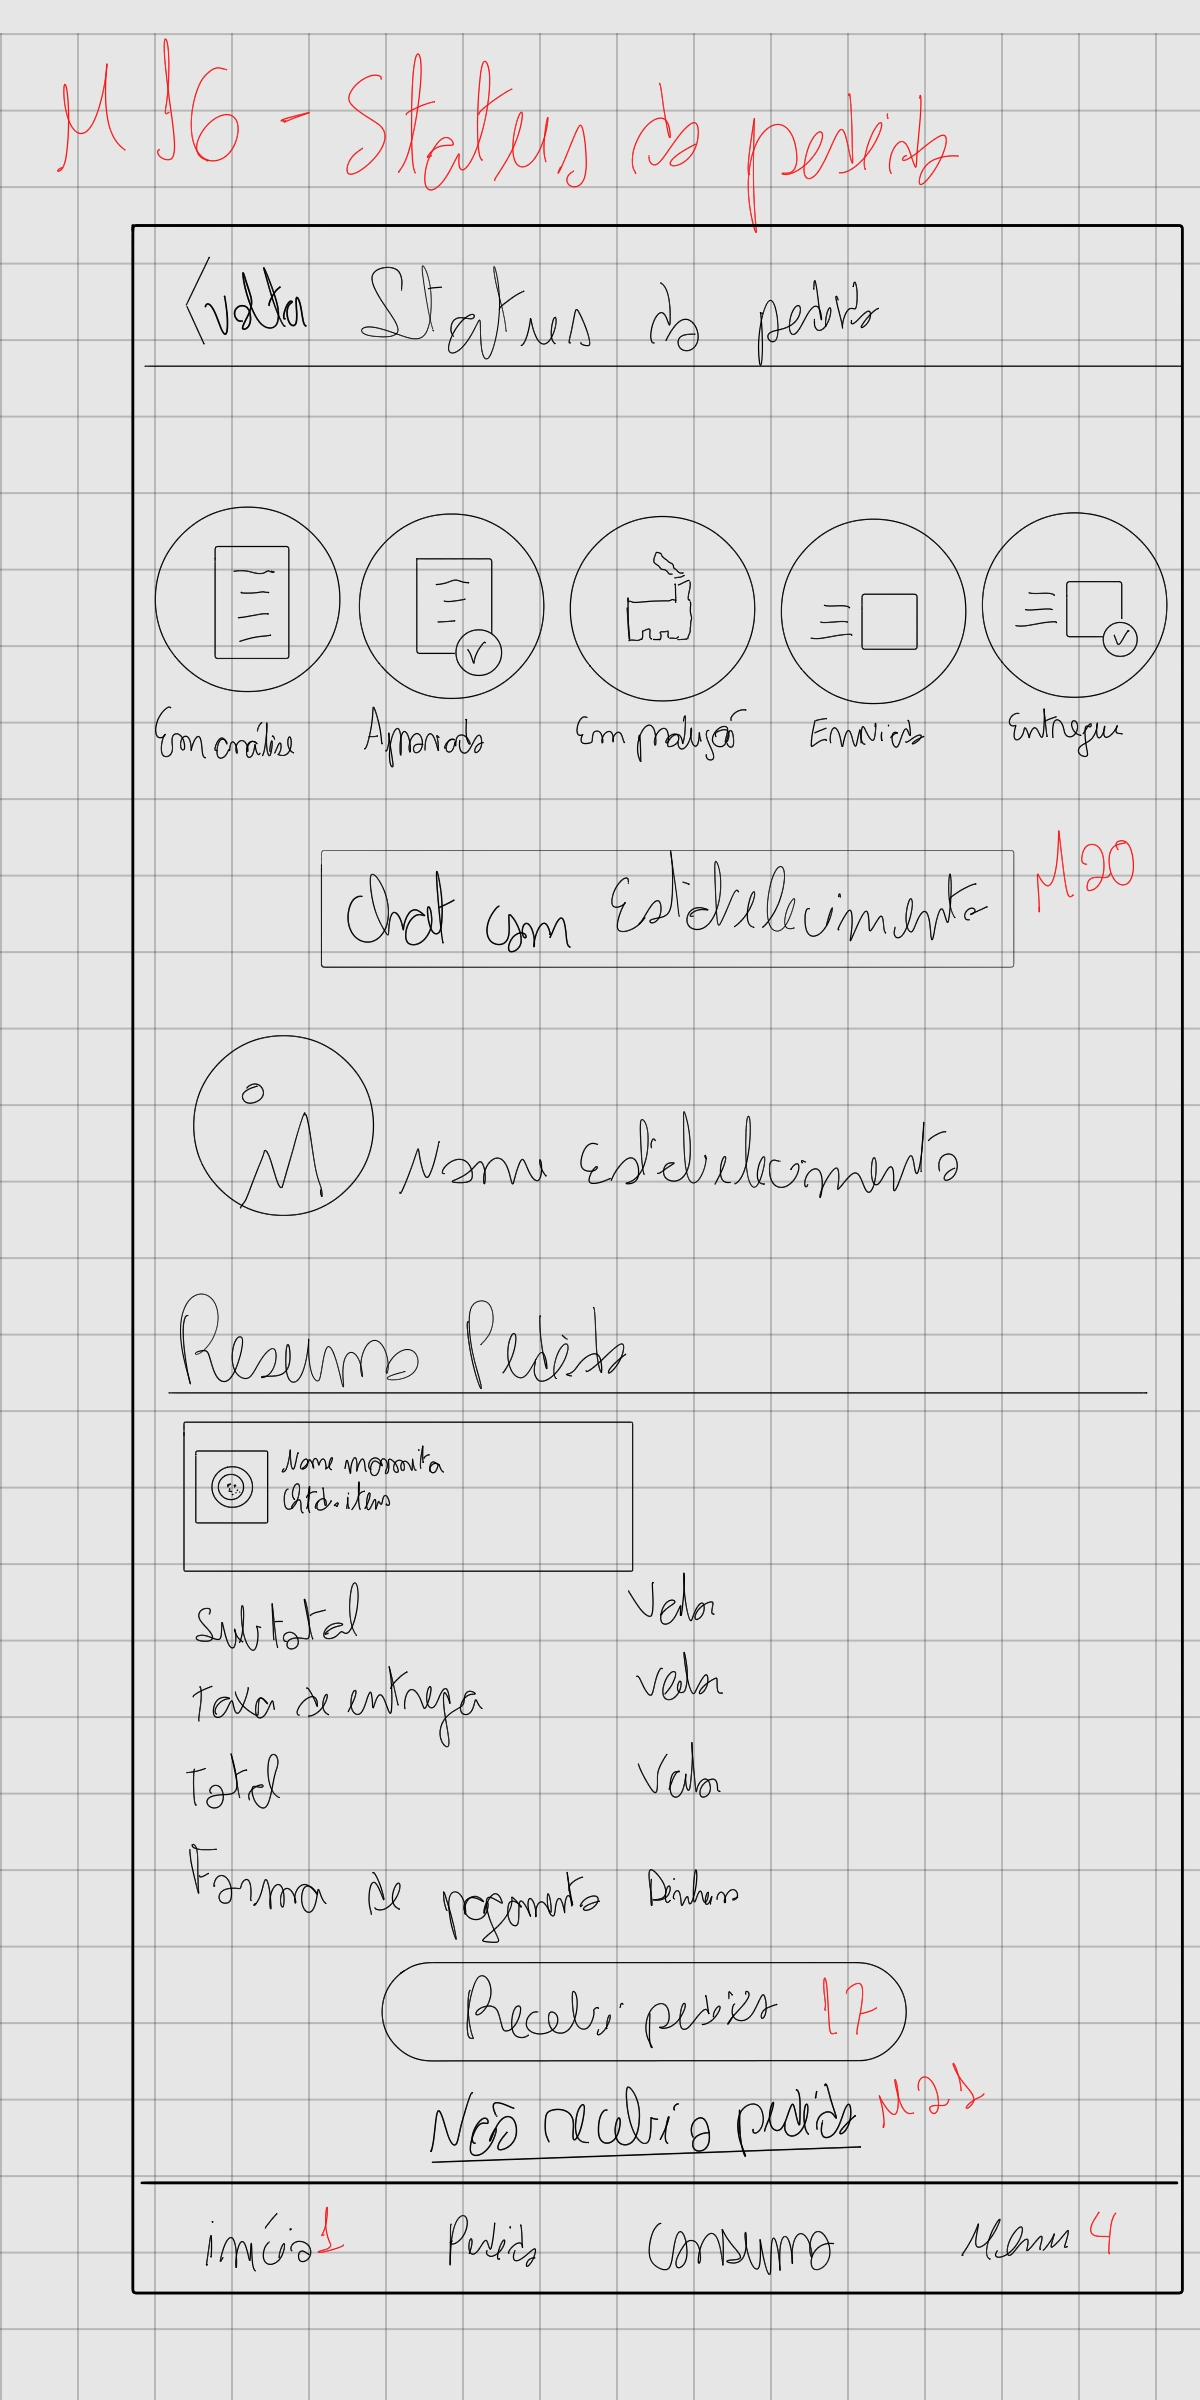 M16 - Status do pedido
<volta Status do pedido
Em análise Aprovado Em produção Enviado Entregue
Chat com Estabelecimento M20
Nome Estabelecimento
Resumo Pedido
Nome marmita
Qtd. itens
Subtotal Valor
Taxa de entrega Valor
Total Valor
Forma de pagamento Dinheiro
Recebi pedido 17
Não recebi o pedido M21
início 1 Pedido Consumo Menu 4